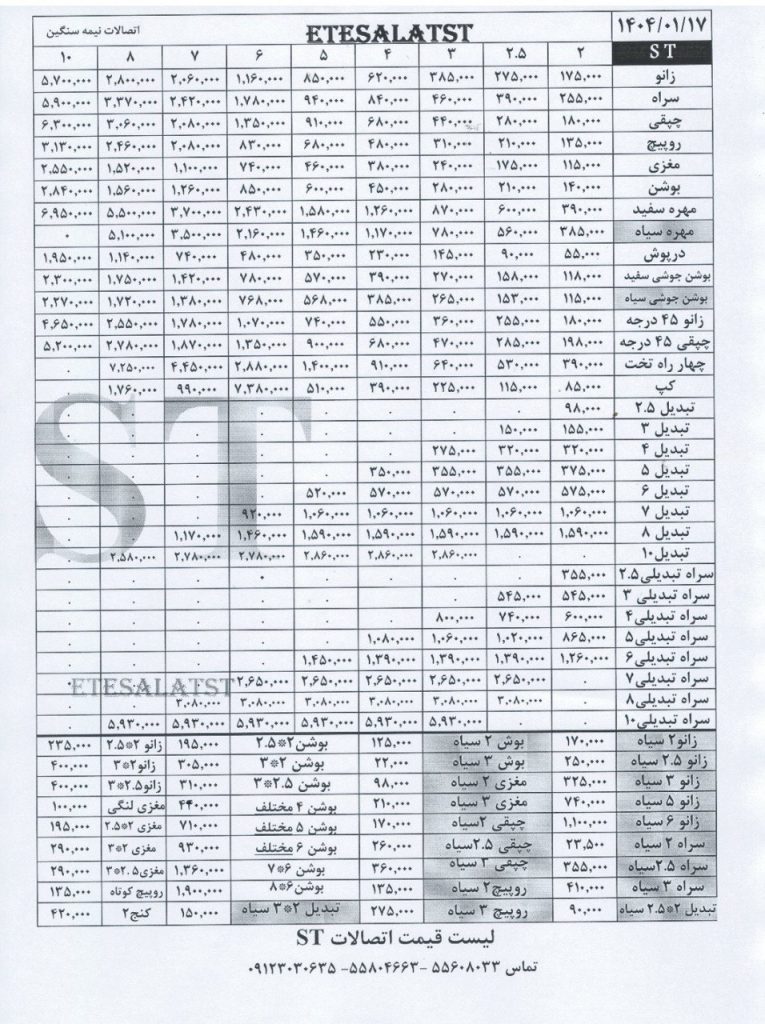 ۱۴۰۴/۰۱/۱۷ ETESALATST اتصالات نیمه سنگین
ST ۲ ۲.۵ ۳ ۴ ۵ ۶ ۷ ۸ ۱۰
زانو ۱۷۵,۰۰۰ ۲۷۵,۰۰۰ ۳۸۵,۰۰۰ ۶۲۰,۰۰۰ ۸۵۰,۰۰۰ ۱,۱۶۰,۰۰۰ ۲,۰۶۰,۰۰۰ ۲,۸۰۰,۰۰۰ ۵,۷۰۰,۰۰۰
سراه ۲۵۵,۰۰۰ ۳۹۰,۰۰۰ ۴۶۰,۰۰۰ ۸۴۰,۰۰۰ ۹۴۰,۰۰۰ ۱,۷۸۰,۰۰۰ ۲,۴۲۰,۰۰۰ ۳,۳۷۰,۰۰۰ ۵,۹۰۰,۰۰۰
چپقی ۱۸۰,۰۰۰ ۲۸۰,۰۰۰ ۴۴۰,۰۰۰ ۶۸۰,۰۰۰ ۹۱۰,۰۰۰ ۱,۳۵۰,۰۰۰ ۲,۰۸۰,۰۰۰ ۳,۰۶۰,۰۰۰ ۶,۳۰۰,۰۰۰
روپیچ ۱۳۵,۰۰۰ ۲۱۰,۰۰۰ ۳۱۰,۰۰۰ ۴۸۰,۰۰۰ ۶۸۰,۰۰۰ ۸۳۰,۰۰۰ ۲,۰۸۰,۰۰۰ ۲,۴۶۰,۰۰۰ ۳,۱۳۰,۰۰۰
مغزی ۱۱۵,۰۰۰ ۱۷۵,۰۰۰ ۲۴۰,۰۰۰ ۳۸۰,۰۰۰ ۴۶۰,۰۰۰ ۷۴۰,۰۰۰ ۱,۱۰۰,۰۰۰ ۱,۵۲۰,۰۰۰ ۲,۵۵۰,۰۰۰
بوشن ۱۴۰,۰۰۰ ۲۱۰,۰۰۰ ۲۸۰,۰۰۰ ۴۵۰,۰۰۰ ۶۰۰,۰۰۰ ۸۵۰,۰۰۰ ۱,۲۶۰,۰۰۰ ۱,۵۶۰,۰۰۰ ۲,۸۴۰,۰۰۰
مهره سفید ۳۹۰,۰۰۰ ۶۰۰,۰۰۰ ۸۷۰,۰۰۰ ۱,۲۶۰,۰۰۰ ۱,۵۸۰,۰۰۰ ۲,۴۳۰,۰۰۰ ۳,۷۰۰,۰۰۰ ۵,۵۰۰,۰۰۰ ۶,۹۵۰,۰۰۰
مهره سیاه ۳۸۵,۰۰۰ ۵۶۰,۰۰۰ ۷۸۰,۰۰۰ ۱,۱۷۰,۰۰۰ ۱,۴۶۰,۰۰۰ ۲,۱۶۰,۰۰۰ ۳,۵۰۰,۰۰۰ ۵,۱۰۰,۰۰۰ ۰
درپوش ۵۵,۰۰۰ ۹۰,۰۰۰ ۱۴۵,۰۰۰ ۲۳۰,۰۰۰ ۳۵۰,۰۰۰ ۴۸۰,۰۰۰ ۷۴۰,۰۰۰ ۱,۱۴۰,۰۰۰ ۱,۹۵۰,۰۰۰
بوشن جوشی سفید ۱۱۸,۰۰۰ ۱۵۸,۰۰۰ ۲۷۰,۰۰۰ ۳۹۰,۰۰۰ ۵۷۰,۰۰۰ ۷۸۰,۰۰۰ ۱,۴۲۰,۰۰۰ ۱,۷۵۰,۰۰۰ ۲,۳۰۰,۰۰۰
بوشن جوشی سیاه ۱۱۵,۰۰۰ ۱۵۳,۰۰۰ ۲۶۵,۰۰۰ ۳۸۵,۰۰۰ ۵۶۸,۰۰۰ ۷۶۸,۰۰۰ ۱,۳۸۰,۰۰۰ ۱,۷۲۰,۰۰۰ ۲,۲۷۰,۰۰۰
زانو ۴۵ درجه ۱۸۰,۰۰۰ ۲۵۵,۰۰۰ ۳۶۰,۰۰۰ ۵۵۰,۰۰۰ ۷۴۰,۰۰۰ ۱,۰۷۰,۰۰۰ ۱,۷۸۰,۰۰۰ ۲,۵۵۰,۰۰۰ ۴,۶۵۰,۰۰۰
چپقی ۴۵ درجه ۱۹۸,۰۰۰ ۲۸۵,۰۰۰ ۴۷۰,۰۰۰ ۶۸۰,۰۰۰ ۹۰۰,۰۰۰ ۱,۳۵۰,۰۰۰ ۱,۸۷۰,۰۰۰ ۲,۷۸۰,۰۰۰ ۵,۲۰۰,۰۰۰
چهار راه تخت ۳۹۰,۰۰۰ ۵۳۰,۰۰۰ ۶۴۰,۰۰۰ ۹۱۰,۰۰۰ ۱,۴۰۰,۰۰۰ ۲,۸۸۰,۰۰۰ ۴,۴۵۰,۰۰۰ ۷,۲۵۰,۰۰۰ ۰
کپ ۸۵,۰۰۰ ۱۱۵,۰۰۰ ۲۲۵,۰۰۰ ۳۹۰,۰۰۰ ۵۱۰,۰۰۰ ۷,۳۸۰,۰۰۰ ۹۹۰,۰۰۰ ۱,۷۶۰,۰۰۰ ۰
تبدیل ۲.۵ ۹۸,۰۰۰ ۰ ۰ ۰ ۰ ۰ ۰ ۰ ۰
تبدیل ۳ ۱۵۵,۰۰۰ ۱۵۰,۰۰۰ ۰ ۰ ۰ ۰ ۰ ۰ ۰
تبدیل ۴ ۳۲۰,۰۰۰ ۳۲۰,۰۰۰ ۲۷۵,۰۰۰ ۰ ۰ ۰ ۰ ۰ ۰
تبدیل ۵ ۳۷۵,۰۰۰ ۳۵۵,۰۰۰ ۳۵۵,۰۰۰ ۳۵۰,۰۰۰ ۰ ۰ ۰ ۰ ۰
تبدیل ۶ ۵۷۵,۰۰۰ ۵۷۰,۰۰۰ ۵۷۰,۰۰۰ ۵۷۰,۰۰۰ ۵۲۰,۰۰۰ ۰ ۰ ۰ ۰
تبدیل ۷ ۱,۰۶۰,۰۰۰ ۱,۰۶۰,۰۰۰ ۱,۰۶۰,۰۰۰ ۱,۰۶۰,۰۰۰ ۱,۰۶۰,۰۰۰ ۹۲۰,۰۰۰ ۰ ۰ ۰
تبدیل ۸ ۱,۵۹۰,۰۰۰ ۱,۵۹۰,۰۰۰ ۱,۵۹۰,۰۰۰ ۱,۵۹۰,۰۰۰ ۱,۵۹۰,۰۰۰ ۱,۴۶۰,۰۰۰ ۱,۱۷۰,۰۰۰ ۰ ۰
تبدیل۱۰ ۰ ۰ ۲,۸۶۰,۰۰۰ ۲,۸۶۰,۰۰۰ ۲,۸۶۰,۰۰۰ ۲,۷۸۰,۰۰۰ ۲,۷۸۰,۰۰۰ ۲,۵۸۰,۰۰۰ ۰
سراه تبدیلی۲.۵ ۳۵۵,۰۰۰ ۰ ۰ ۰ ۰ ۰ ۰ ۰ ۰
سراه تبدیلی ۳ ۵۴۵,۰۰۰ ۵۴۵,۰۰۰ ۰ ۰ ۰ ۰ ۰ ۰ ۰
سراه تبدیلی۴ ۶۰۰,۰۰۰ ۷۴۰,۰۰۰ ۸۰۰,۰۰۰ ۰ ۰ ۰ ۰ ۰ ۰
سراه تبدیلی۵ ۸۶۵,۰۰۰ ۱,۰۲۰,۰۰۰ ۱,۰۶۰,۰۰۰ ۱,۰۸۰,۰۰۰ ۰ ۰ ۰ ۰ ۰
سراه تبدیلی۶ ۱,۲۶۰,۰۰۰ ۱,۳۹۰,۰۰۰ ۱,۳۹۰,۰۰۰ ۱,۳۹۰,۰۰۰ ۱,۴۵۰,۰۰۰ ۰ ۰ ۰ ۰
سراه تبدیلی۷ ۰ ۲,۶۵۰,۰۰۰ ۲,۶۵۰,۰۰۰ ۲,۶۵۰,۰۰۰ ۲,۶۵۰,۰۰۰ ۲,۶۵۰,۰۰۰ ۰ ۰ ۰
سراه تبدیلی۸ ۰ ۳,۰۸۰,۰۰۰ ۳,۰۸۰,۰۰۰ ۳,۰۸۰,۰۰۰ ۳,۰۸۰,۰۰۰ ۳,۰۸۰,۰۰۰ ۳,۰۸۰,۰۰۰ ۰ ۰
سراه تبدیلی۱۰ ۰ ۰ ۵,۹۳۰,۰۰۰ ۵,۹۳۰,۰۰۰ ۵,۹۳۰,۰۰۰ ۵,۹۳۰,۰۰۰ ۵,۹۳۰,۰۰۰ ۵,۹۳۰,۰۰۰ ۰
زانو۲ سیاه ۱۷۰,۰۰۰ بوش ۲ سیاه ۱۲۵,۰۰۰ بوشن۲*۲.۵ ۱۹۵,۰۰۰ زانو ۲*۲.۵ ۲۳۵,۰۰۰
زانو ۲.۵ سیاه ۲۵۰,۰۰۰ بوش ۳ سیاه ۲۲,۰۰۰ بوشن ۲*۳ ۳۰۵,۰۰۰ زانو۲*۳ ۴۰۰,۰۰۰
زانو ۳ سیاه ۳۲۵,۰۰۰ مغزی ۲ سیاه ۹۸,۰۰۰ بوشن ۲.۵*۳ ۳۱۰,۰۰۰ زانو۲.۵*۳ ۴۰۰,۰۰۰
زانو ۵ سیاه ۷۴۰,۰۰۰ مغزی ۳ سیاه ۲۱۰,۰۰۰ بوشن ۴ مختلف ۴۴۰,۰۰۰ مغزی لنگی ۱۰۰,۰۰۰
زانو ۶ سیاه ۱,۱۰۰,۰۰۰ چپقی ۲سیاه ۱۷۰,۰۰۰ بوشن ۵ مختلف ۷۱۰,۰۰۰ مغزی ۲*۲.۵ ۱۹۵,۰۰۰
سراه ۲ سیاه ۲۳,۵۰۰ چپقی ۲.۵سیاه ۲۶۰,۰۰۰ بوشن ۶ مختلف ۹۳۰,۰۰۰ مغزی ۲*۳ ۲۹۰,۰۰۰
سراه ۲.۵سیاه ۳۵۵,۰۰۰ چپقی ۳ سیاه ۳۶۰,۰۰۰ بوشن ۶*۷ ۱,۳۶۰,۰۰۰ مغزی۲.۵*۳ ۲۹۰,۰۰۰
سراه ۳ سیاه ۴۱۰,۰۰۰ روپیچ۲ سیاه ۱۳۵,۰۰۰ بوشن۶*۸ ۱,۹۰۰,۰۰۰ روپیچ کوتاه ۱۳۵,۰۰۰
تبدیل ۲*۲.۵ سیاه ۹۰,۰۰۰ روپیچ ۳ سیاه ۲۷۵,۰۰۰ تبدیل ۲*۳ سیاه ۱۵۰,۰۰۰ کنج۲ ۴۲۰,۰۰۰
لیست قیمت اتصالات ST
تماس ۵۵۶۰۸۰۳۳ -۵۵۸۰۴۶۶۳ -۰۹۱۲۳۰۳۰۶۳۵
ST
ETESALATST